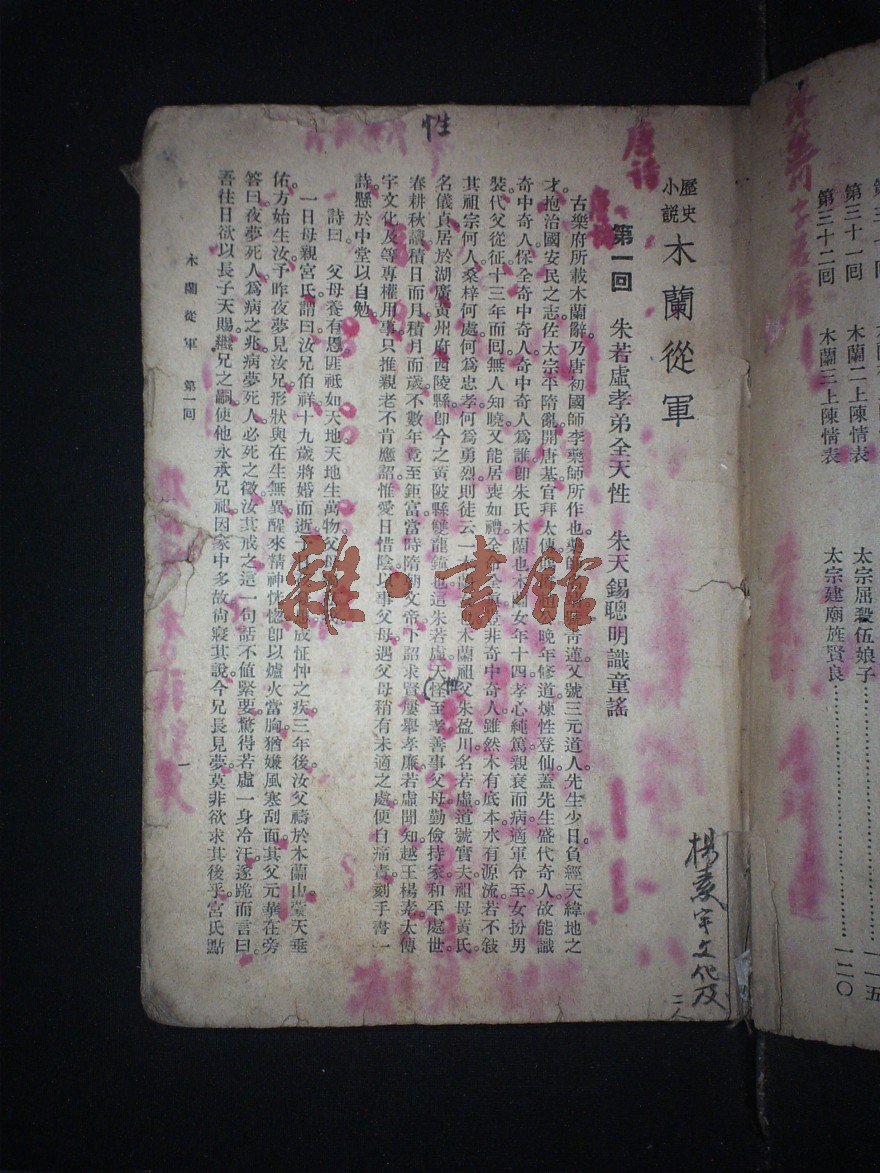 第三十一回 木蘭二上陳情表 太宗屈殺伍娘子 一一五
第三十二回 木蘭三上陳情表 太宗建廟旌賢良 一二〇
歷史小說 木蘭從軍
第一回 朱若虛孝弟全天性 朱天錫聰明識童謠
古樂府所載木蘭辭乃唐初國師李藥師所作也
才抱治國安民之志佐太宗平隋亂開唐基官拜太傅 晚年修道煉性登仙蓋先生盛代奇人故能識
奇中奇人保全奇中奇人奇中奇人為誰卽朱氏木蘭也木蘭女年十四孝心純篤親衰而病適軍令至女扮男
裝代父從征十三年而回無人知曉又能居喪如禮全 非奇中奇人雖然木有底本水有源流若不敍
其祖宗何人桑梓何處何為忠孝何為勇烈則徒云 木蘭祖父朱盈川名若虛道號實夫祖母黃氏
名儀貞居於湖廣黃州府西陵縣卽今之黃陂縣雙龍鎮也這朱若虛天性至孝善事父母勤儉持家和平處世
春耕秋讀積日而月積月而歲不數年竟至鉅富當時隋朝文帝下詔求賢屢舉孝廉若虛聞知越王楊素太傅
宇文化及等專權用事只推親老不肯應詔惟愛日惜陰以事父母遇父母稍有未適之處便自痛責刻手書一
詩懸於中堂以自勉
詩曰 父母養有恩匪祇如天地天地生萬物父母
一日母親宮氏謂曰汝兄伯祥十九歲將婚而逝 成怔忡之疾三年後汝父禱於木蘭山蒙天垂
佑方始生汝予昨夜夢見汝兄形狀與在生無異醒來精神恍惚卽以爐火當胸猶嫌風寒刮面其父元華在旁
答曰夜夢死人為病之兆病夢死人必死之徵汝其戒之這一句話不值緊要驚得若虛一身冷汗遂跪而言曰
吾往日欲以長子天賜繼兄之嗣使他永承兄祀因家中多故尙寢其說今兄長見夢莫非欲求其後乎宮氏點
木蘭從軍 第一回 一
性
性
唐詩
楊素宇文化及
二人
雜·書館